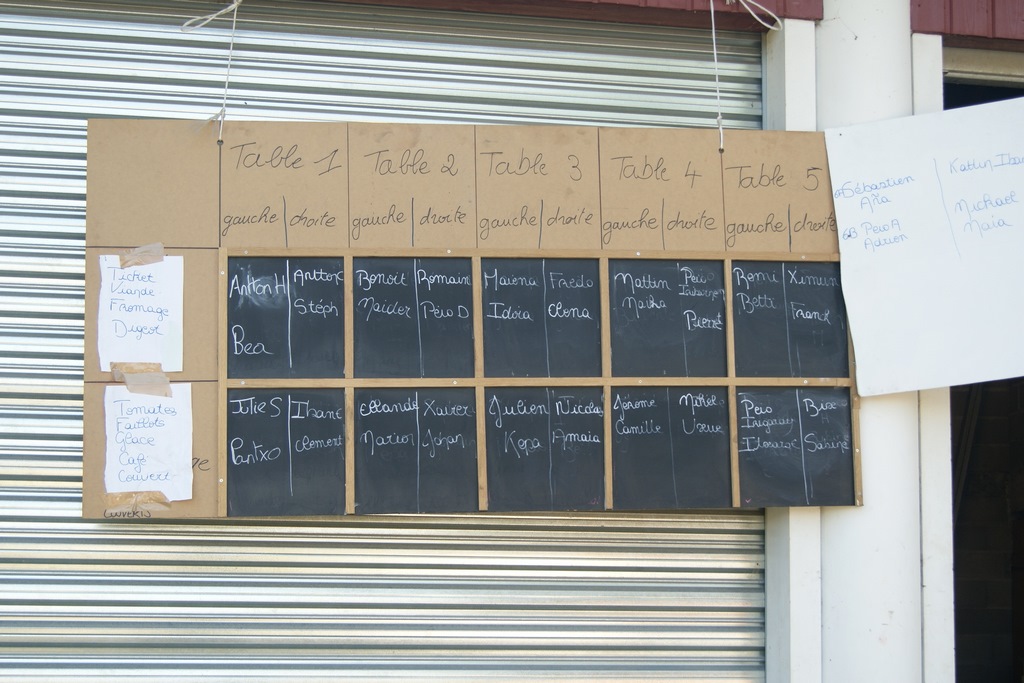 Table 1 Table 2 Table 3 Table 4 Table 5
gauche droite gauche droite gauche droite gauche droite gauche droite
Ticket
Viande
Fromage
Anton H
Bea
Stéph
Benoit
Maider
Romain
Peio D
Maiena
Idoia
Fredo
Elena
Mattin
Maika
Peio
Pierre
Remi
Betti
Ximun
Franck
Tomates
Glace
Café
Couvert
Julie S
Pantxo
Ibane
Clement
Marion
Xavier
Johan
Julien
Kepa
Nicolas
Amaia
Jérome
Camille
Mikel
Peio
Sabine
Sébastien
Aña
Peio A
Adrien
Katlin
Michael
Naia